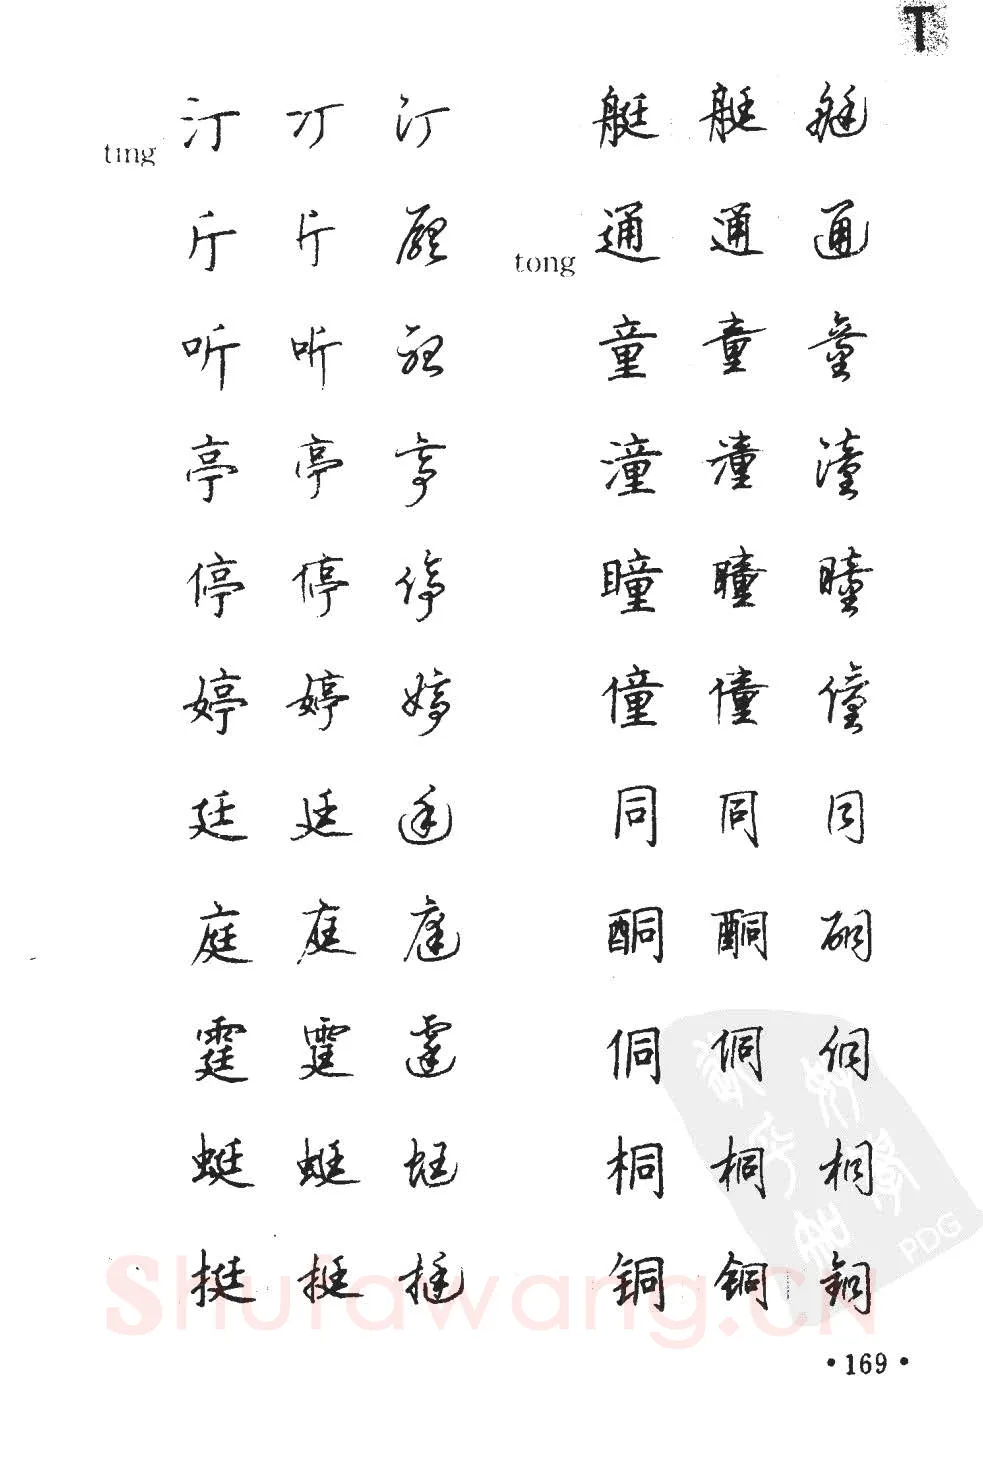 T
ting
汀 汀 汀
厅 厅 廳
听 听 聽
亭 亭 亭
停 停 停
婷 婷 婷
廷 廷 廷
庭 庭 庭
霆 霆 霆
蜓 蜓 蜓
挺 挺 挺
艇 艇 艇
tong
通 通 通
童 童 童
潼 潼 潼
瞳 瞳 瞳
僮 僮 僮
同 同 同
酮 酮 酮
侗 侗 侗
桐 桐 桐
铜 铜 銅
PDG
Shufawang.CN
·169·